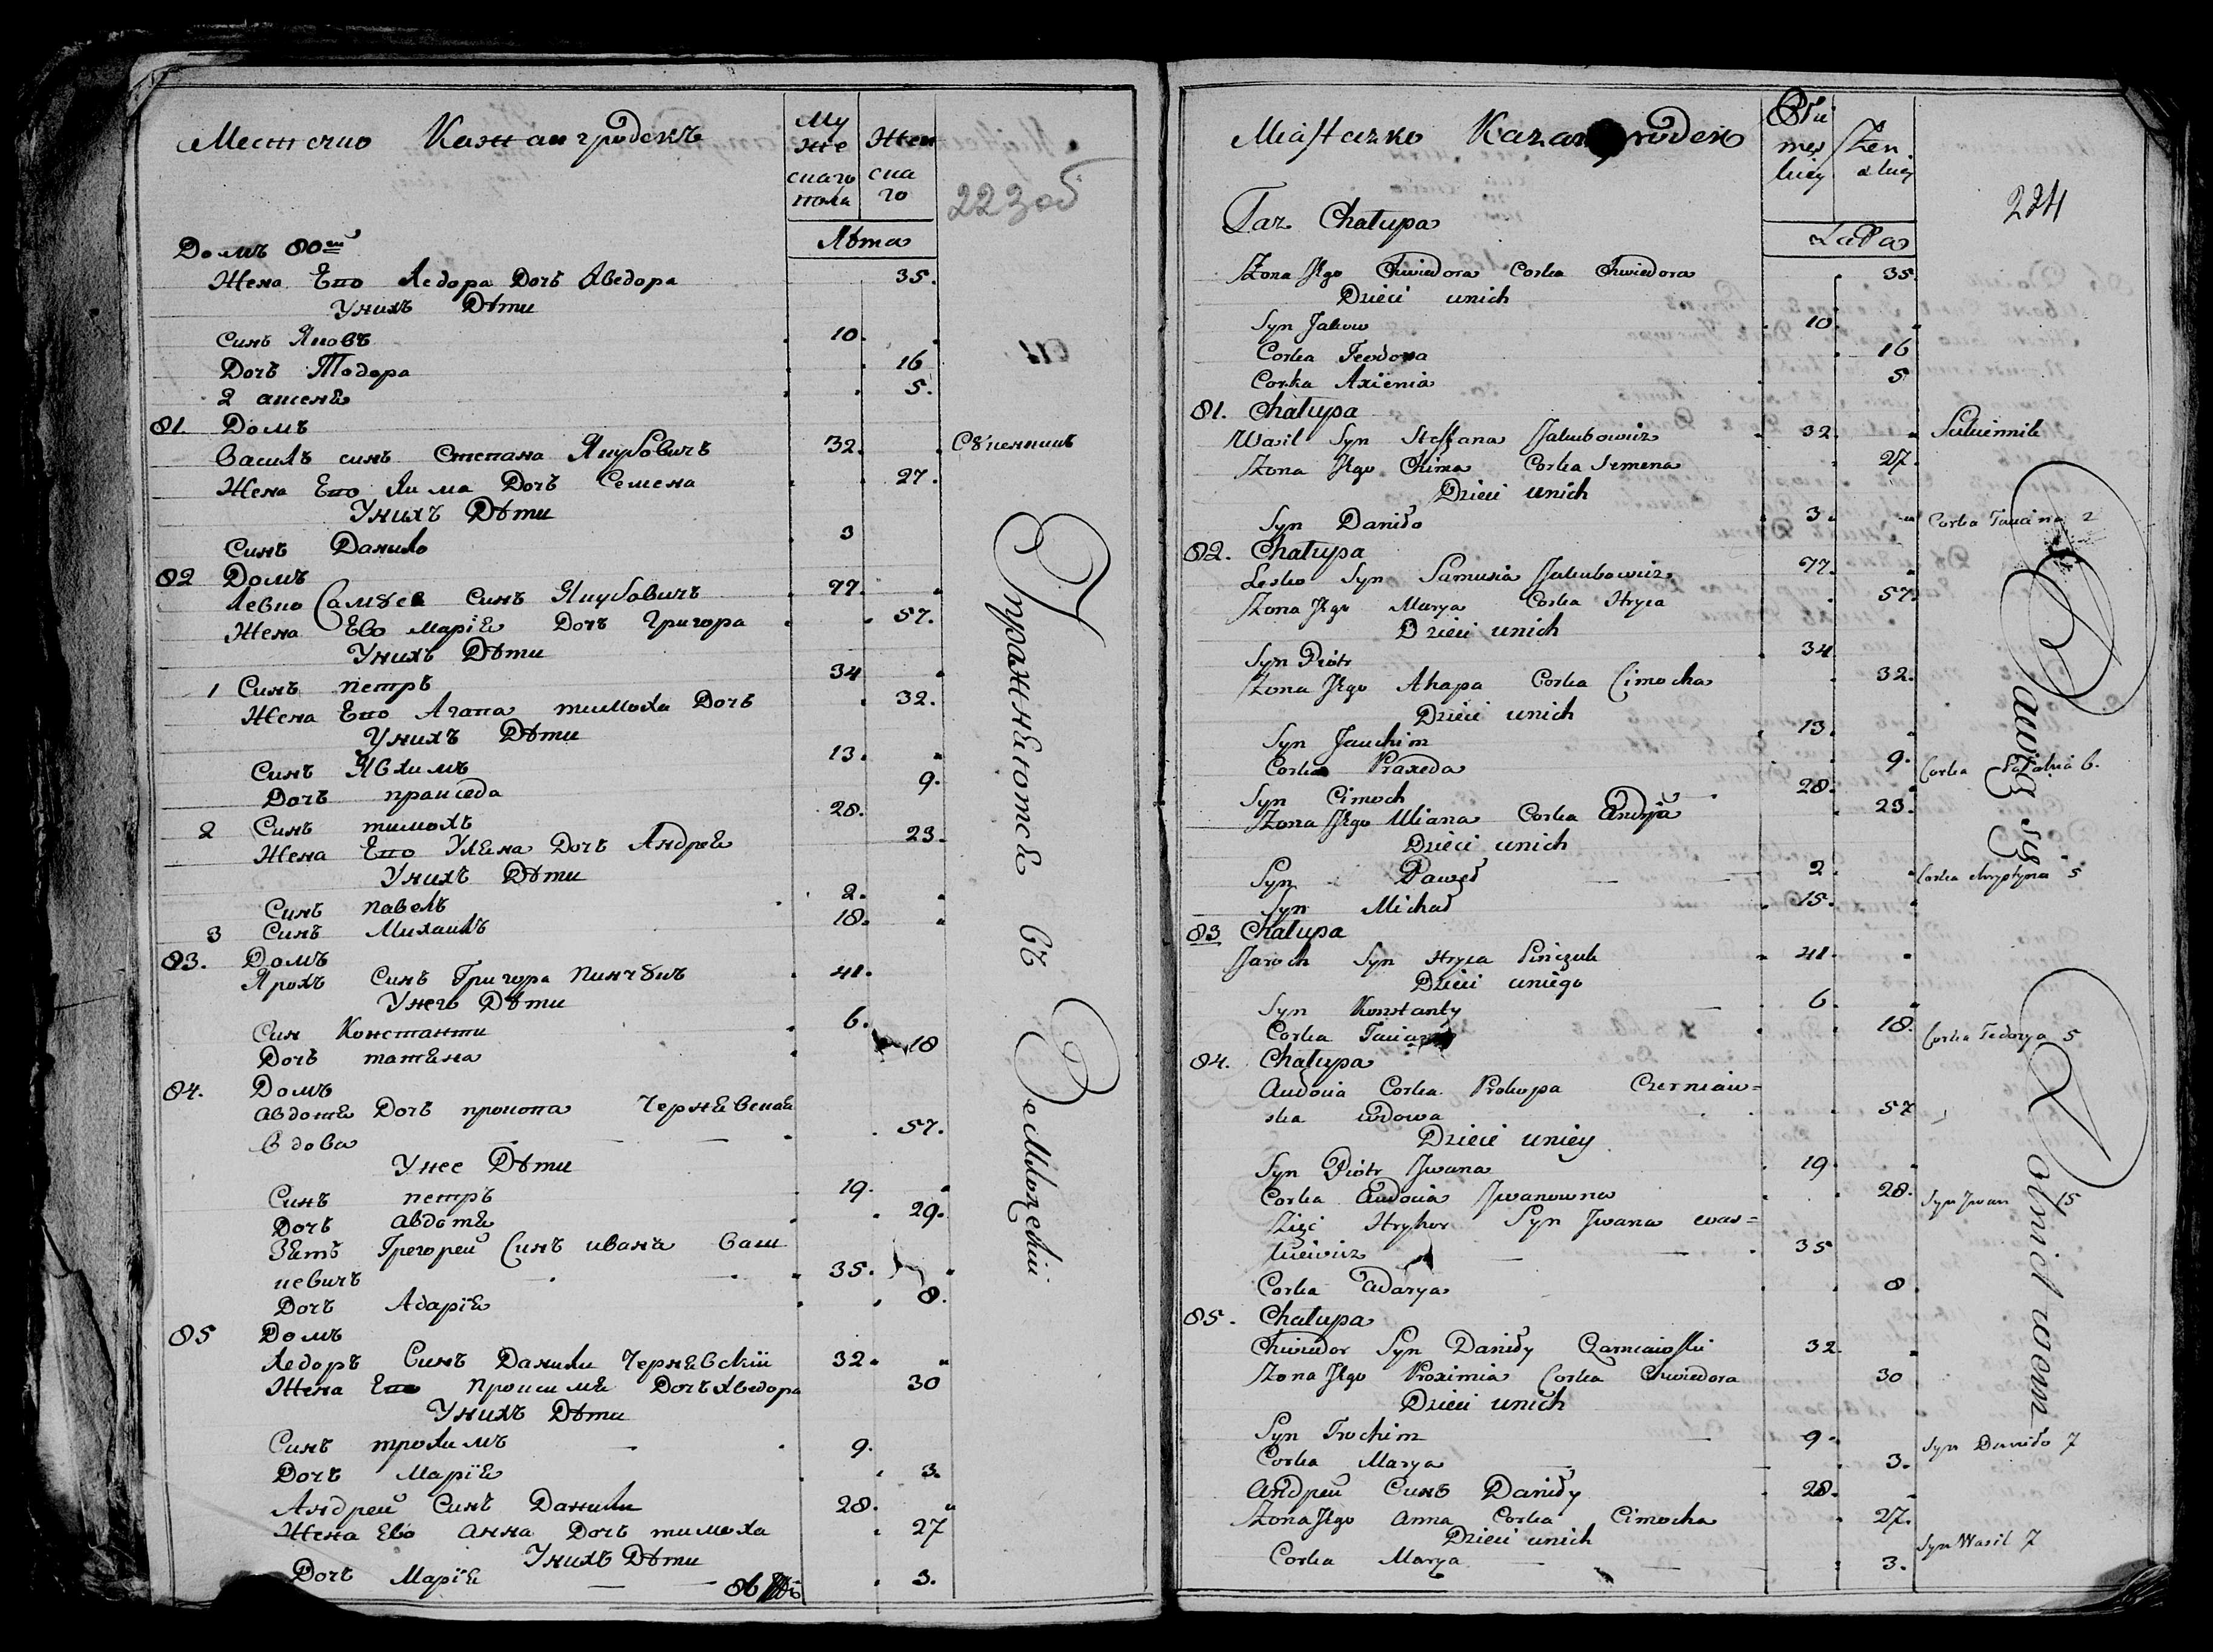 Местечко Кажангродекъ
Му
же
скаго
пола
Жен
ска
го
223об
Лѣта
Домъ 80ий
Жена Ево Хведора Дочъ Хведора 35.
Унихъ Дѣти
Синъ Яковъ 10.
Дочъ Тодора 16
2 аксеня 5.
81. Домъ
Василъ синъ Степана Якубовичъ 32.
Жена Ево Хима Дочъ Семена 27.
Унихъ Дѣти
Синъ Данило 3
82 Домъ
Левко Самуся Синъ Якубовичъ 77.
Жена Ево Марія Дочъ Григора 57.
Унихъ Дѣти
1 Синъ петръ 34
Жена Ево Агапа тимоха Дочъ 32.
Унихъ Дѣти
Синъ Явхимъ 13.
Дочъ праκседа 9.
2 Синъ тимохъ 28.
Жена Ево Уляна Дочъ Андрея 23.
Унихъ Дѣти
Синъ павелъ 2.
3 Синъ Михаилъ 18.
83. Домъ
Ярохъ Синъ Григора пинчукъ 41.
Унего Дѣти
Син Константи 6.
Дочъ татяна 18
84. Домъ
Авдотя Дочъ прокопа Чернявская
вдова 57.
Унее Дѣти
Синъ петръ 19.
Дочъ авдотя 29.
Зять Грегорей Синъ ивана Васи
левичъ 35.
Дочъ Адарія 8.
85 Домъ
Хедоръ Синъ Данили Чернявскій 32.
Жена Ево проксимя Дочъ Хведора 30
Унихъ Дѣти
Синъ трохимъ 9.
Дочъ Марія 3.
Андрей Синъ Данили 28.
Жена Ево анна Дочъ тимоха 27
Унихъ Дѣти
Дочъ Марія 3.
86
Упражняются въ Землопскіи
Miasteczko Kazangrodek
Żen
skiey
224
Lata
Taz Chałupa
Zona Jego Chwiedora Corka Chwiedora 35.
Dzieci unich
Syn Jakow 10.
Corka Teodora 16
Corka Axienia 5
81. Chałupa
Wasil Syn Steffana Jakubowicz 32.
Zona Jego Chima Corka Semena 27.
Dzieci unich
Syn Daniło 3. Corka Taucina 2
82. Chałupa
Lesko Syn Samusia Jakubowicz 77.
Zona Jego Marya Corka Hryca 57.
Dzieci unich
Syn Piotr 34
Zona Jego Ahapa Corka Cimocha 32.
Dzieci unich
Syn Jauchim 13.
Corka Praxeda 9.
Syn Cimoch 28.
Zona Jego Uliana Corka Andryja 23.
Dzieci unich
Syn Paweł 2. Corka Krystyna 5
Syn Michał 15.
83 Chałupa
Jaroch Syn Hryca Pinczuk 41.
Dzieci uniego
Syn Konstanty 6.
Corka 18. Corka Fedorya 5
84. Chałupa
Audocia Corka Prokopa Czerniaw=
ska wdowa 57
Dzieci uniey
Syn Piotr Jwana 19.
Corka Audocia Jwanowna 28. Syn Jwan 15
Zięć Hryhor Syn Jwana was=
ilewicz 35
Corka adarya 8
85. Chałupa
Chwiedor Syn Daniły Czarniawski 32
Zona Jego Proximia Corka Chwiedora 30
Dzieci unich
Syn Trochim 9. Syn Daniło 7
Corka Marya 3.
Andрей Синъ Daniły 28.
Zona Jego Anna Corka Cimocha 27.
Dzieci unich Syn Wasil 7
Corka Marya 3.
Bawią się Rolnictwem